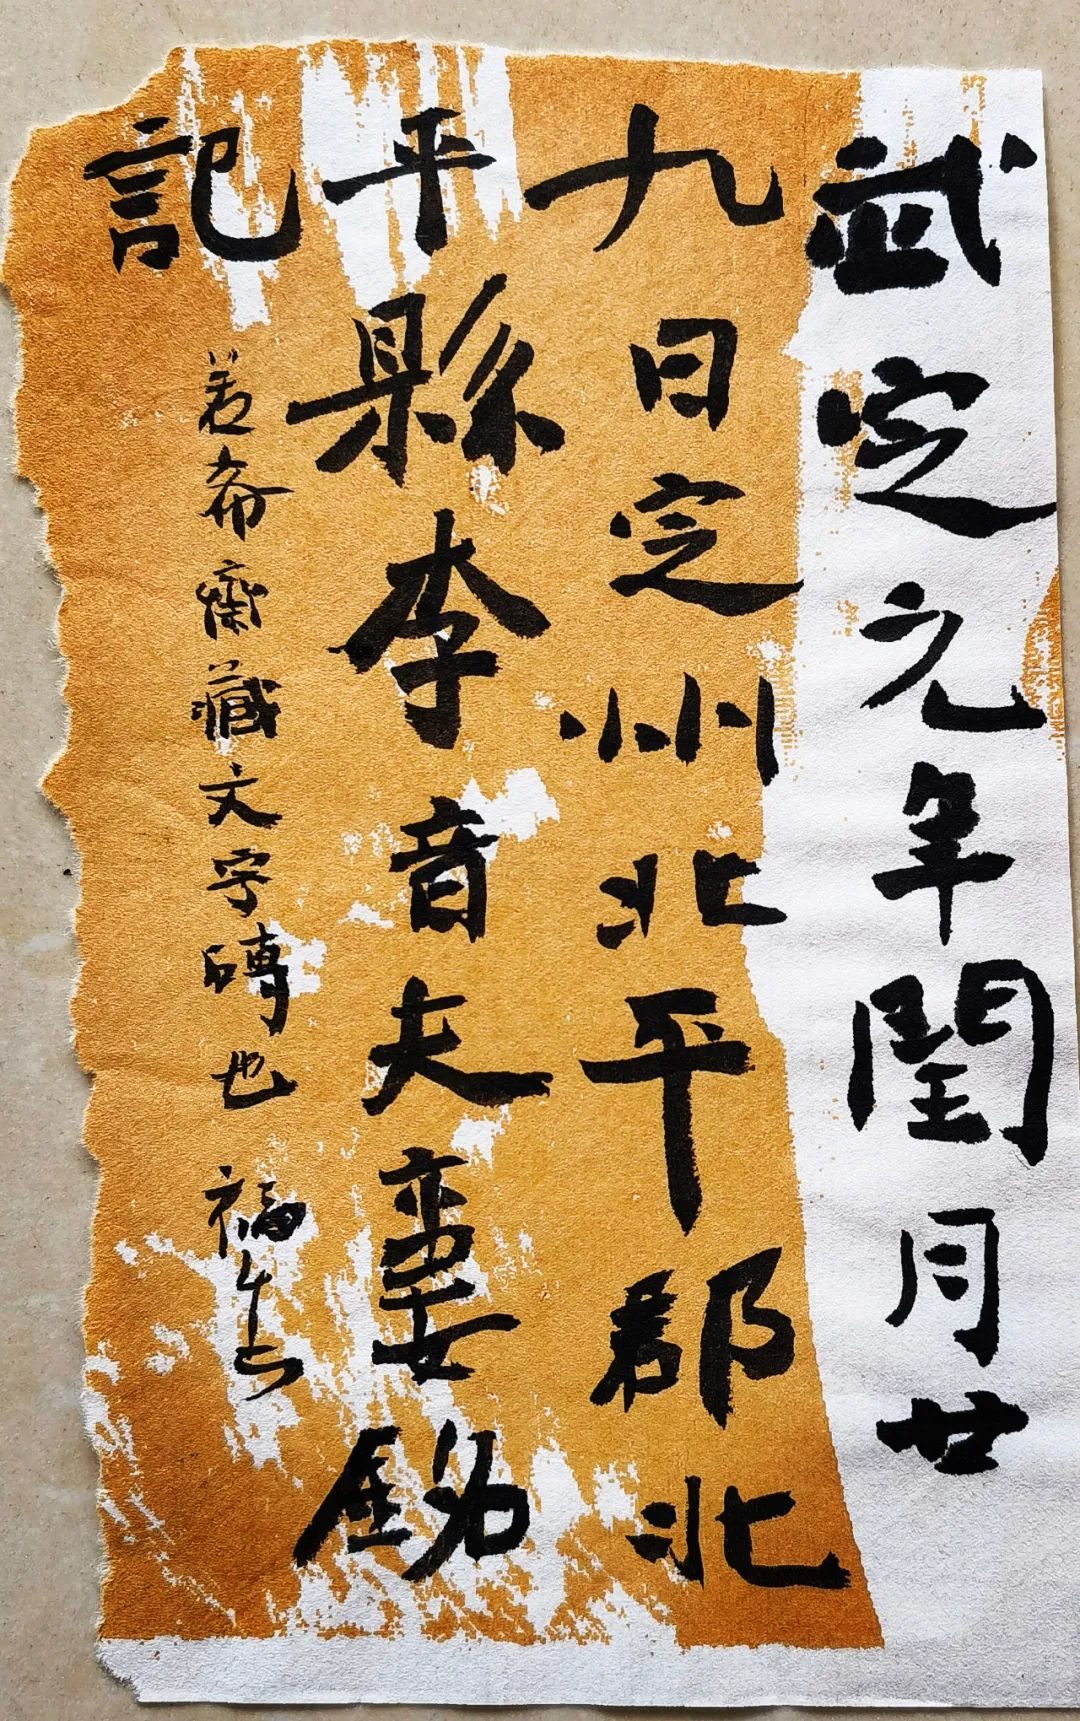 武定元年閏月廿
九日定州北平郡北
平縣李音夫妻銘
記
若希齋藏文字磚也 福生